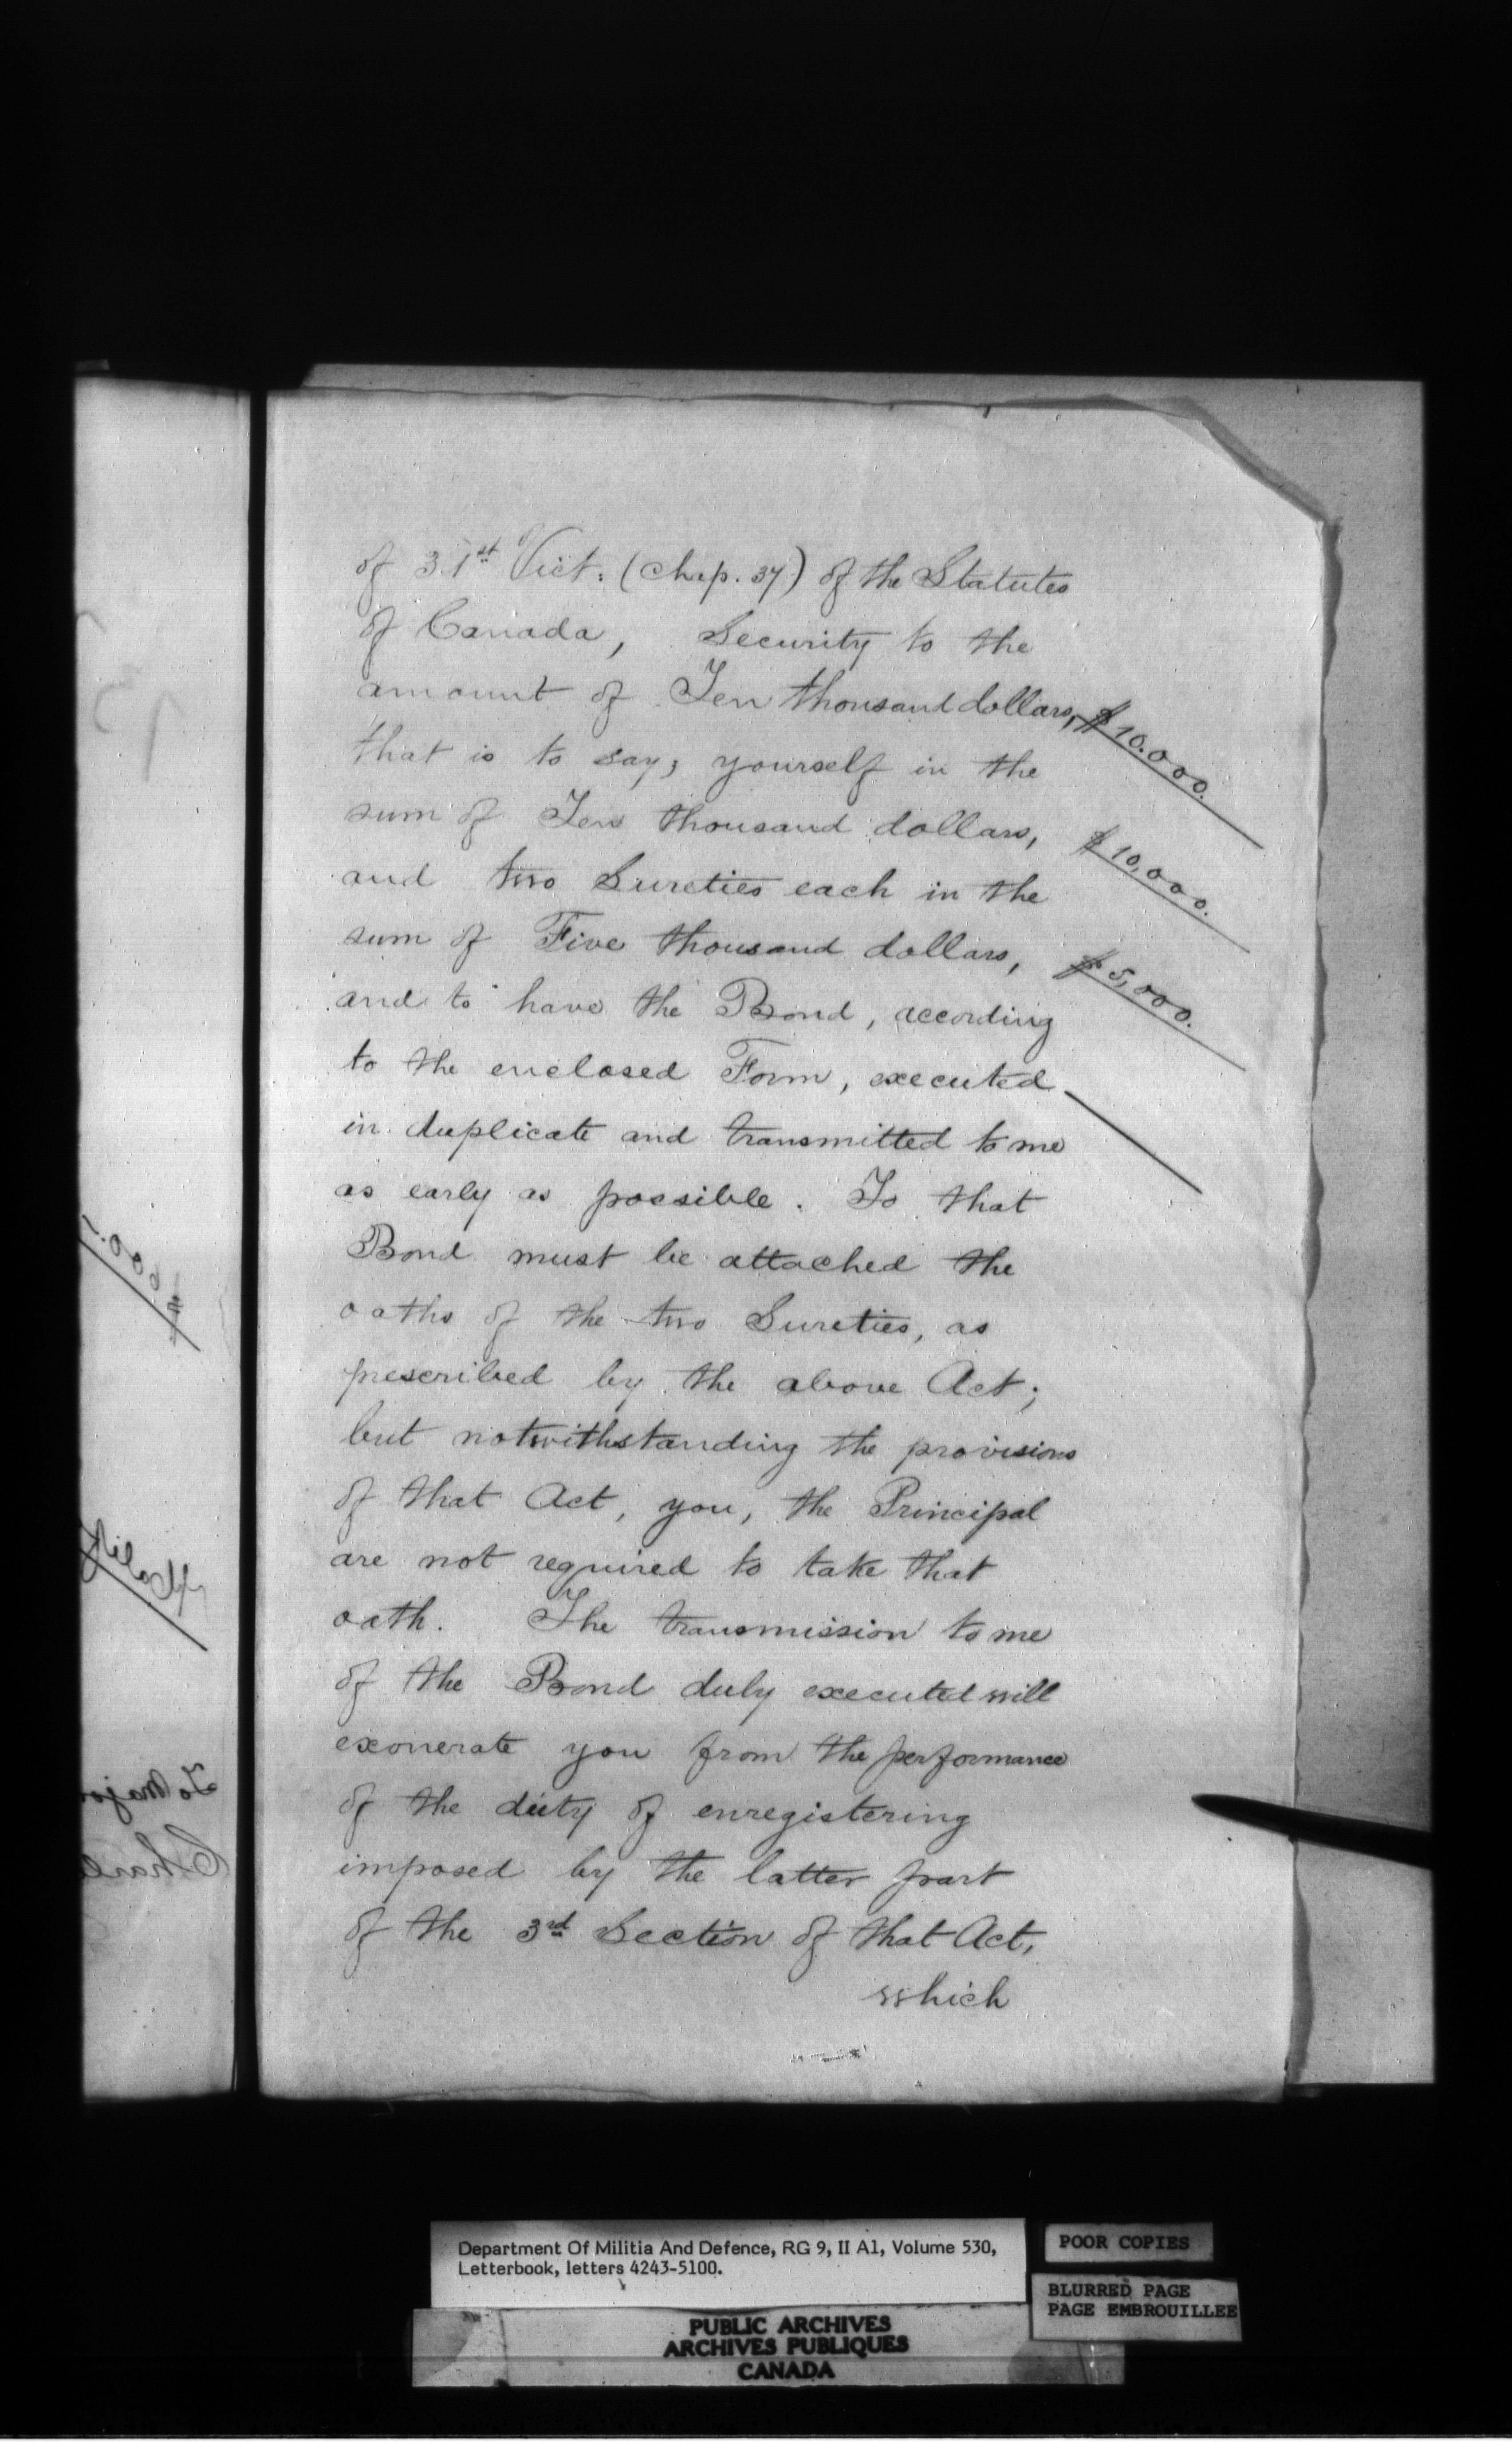 of 31st Vict. (Chap. 37) of the Statutes
of Canada, Security to the
amount of Ten thousand dollars, $10.000.
that is to say, yourself in the
sum of Ten thousand dollars, $10,000.
and two Sureties each in the
sum of Five thousand dollars, $5,000.
and to have the Bond, according
to the enclosed Form, executed
in duplicate and transmitted to me
as early as possible. To that
Bond must be attached the
oaths of the two Sureties, as
prescribed by the above Act;
but notwithstanding the provisions
of that Act, you, the Principal
are not required to take that
oath. The transmission to me
of the Bond duly executed will
exonerate you from the performance
of the duty of enregistering
imposed by the latter part
of the 3rd Section of that Act,
which
To Major
Charl
Department Of Militia And Defence, RG 9, II A1, Volume 530,
Letterbook, letters 4243-5100.
POOR COPIES
BLURRED PAGE
PAGE EMBROUILLEE
PUBLIC ARCHIVES
ARCHIVES PUBLIQUES
CANADA